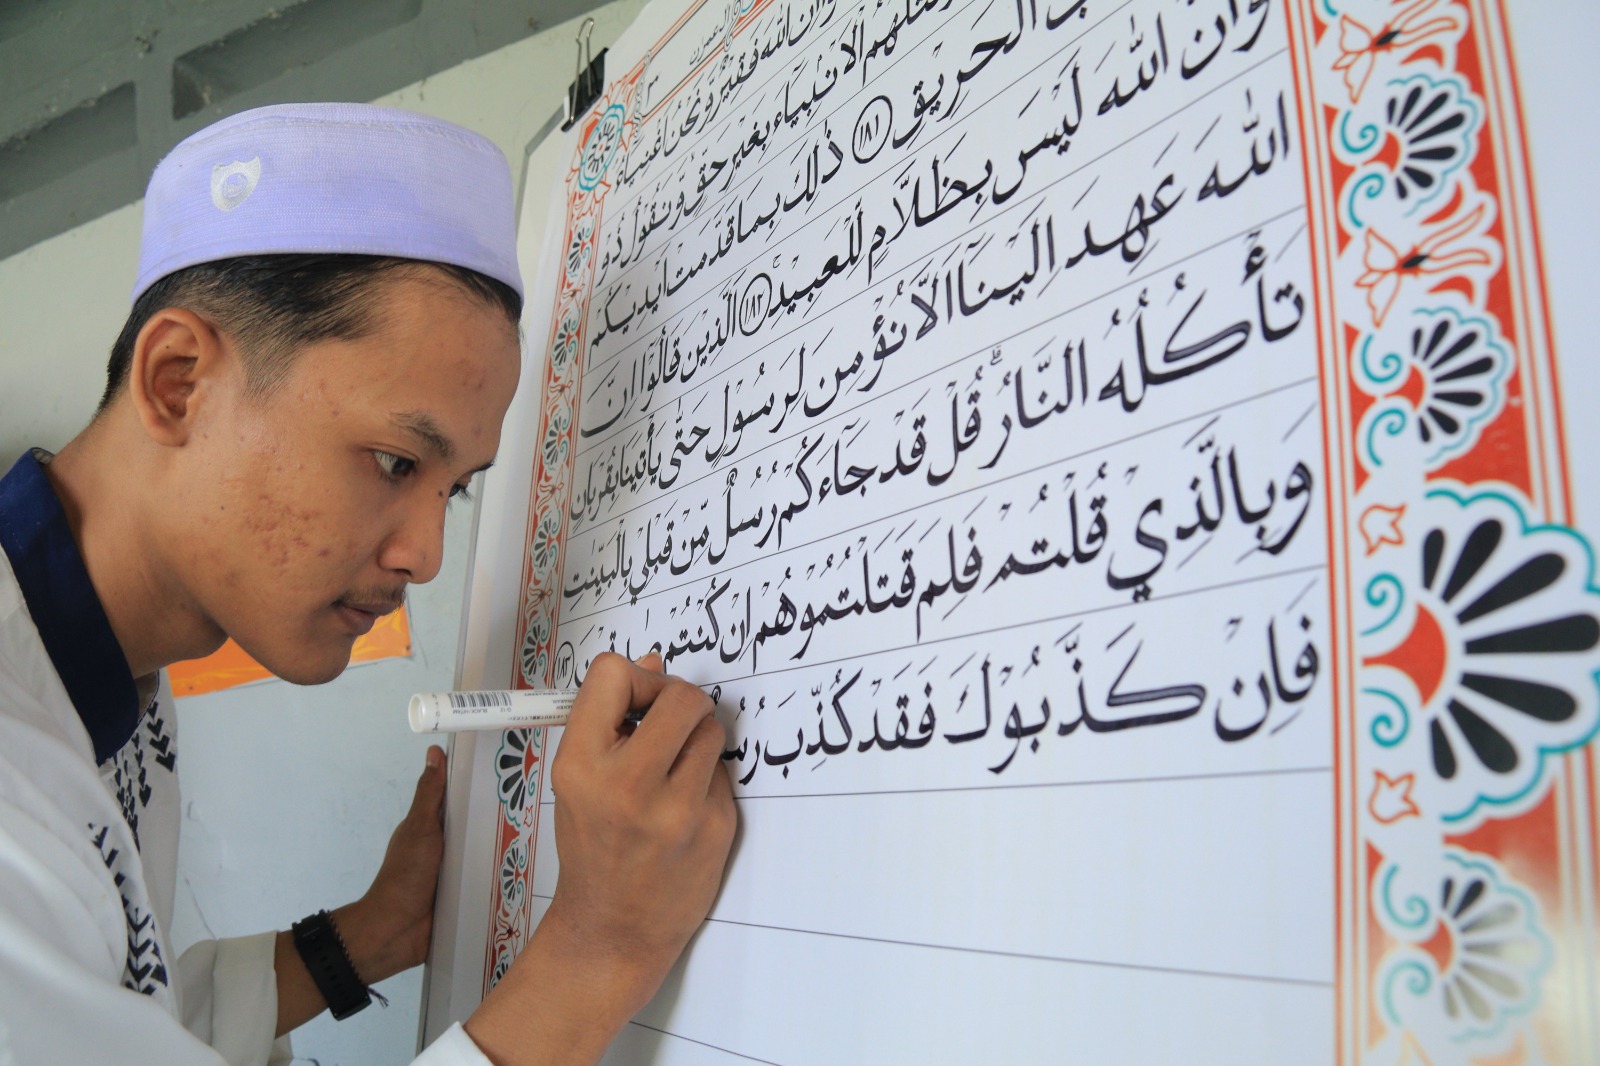 اٰل عمرٰن
٣
اِنَّ اللّٰهَ فَقِيْرٌ وَّنَحْنُ اَغْنِيَاءُ
الْاَنْبِيَآءَ بِغَيْرِ حَقٍّ وَّنَقُوْلُ ذُوْ
الْحَرِيْقِ ١٨١ ذٰلِكَ بِمَا قَدَّمَتْ اَيْدِيْكُمْ
وَاَنَّ اللّٰهَ لَيْسَ بِظَلَّامٍ لِّلْعَبِيْدِ ١٨٢ اَلَّذِيْنَ قَالُوْٓا اِنَّ
اللّٰهَ عَهِدَ اِلَيْنَآ اَلَّا نُؤْمِنَ لِرَسُوْلٍ حَتّٰى يَأْتِيَنَا بِقُرْبَانٍ
تَأْكُلُهُ النَّارُ ۗ قُلْ قَدْ جَاۤءَكُمْ رُسُلٌ مِّنْ قَبْلِيْ بِالْبَيِّنٰتِ
وَبِالَّذِيْ قُلْتُمْ فَلِمَ قَتَلْتُمُوْهُمْ اِنْ كُنْتُمْ صٰدِقِيْنَ ١٨٣
فَاِنْ كَذَّبُوْكَ فَقَدْ كُذِّبَ رُسُ